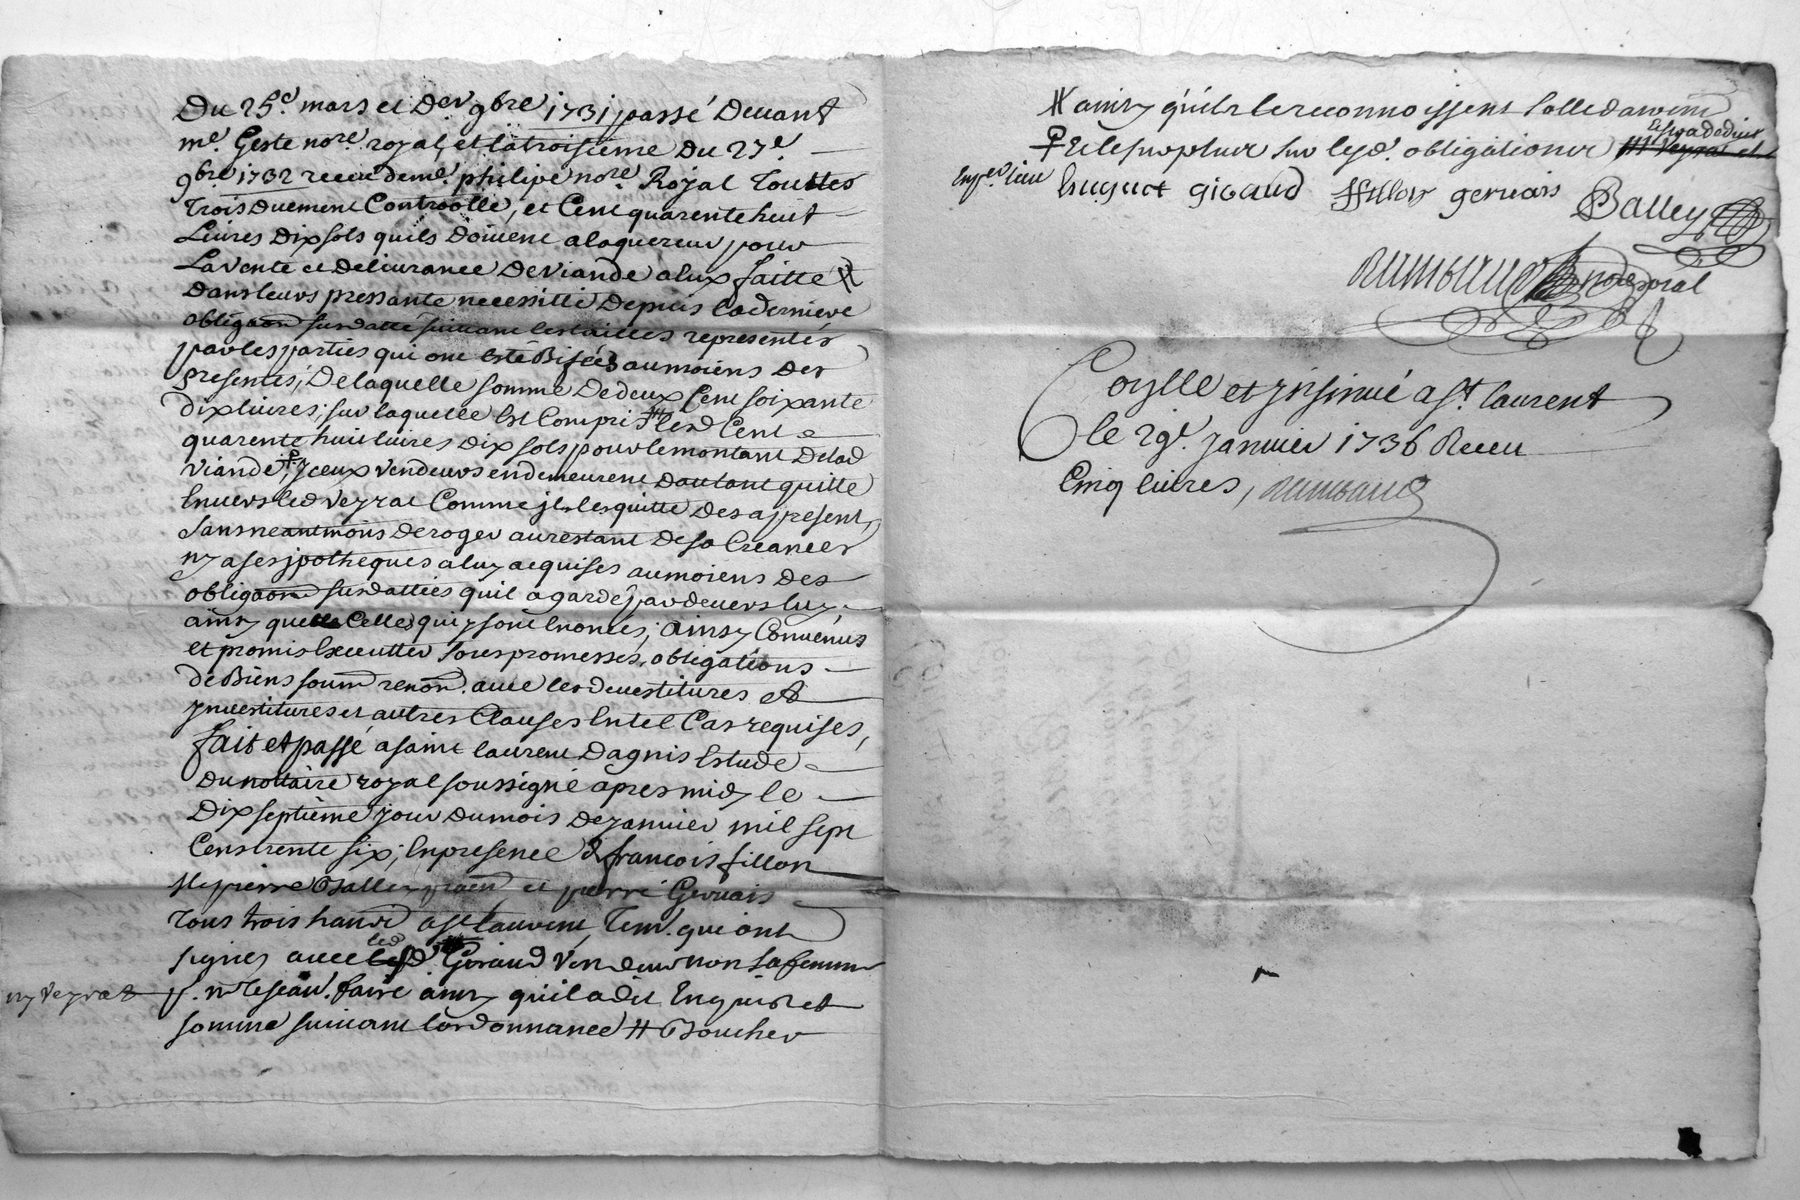 Du 25e. mars et Der 9bre 1731 passé Devant
me. Geste nore. royal, et la troisieme Du 27e.
9bre 1732 receu de me. philipe nore. Royal Touttes
Trois Duement Controollé, et Cent quarente huit
Livres Dix sols quils doivent a laquereur pour
La vente et delivrance De viande a lux faitte #
Dans leurs pressante necessitté Depuis la derniere
obligaon susdatté suivant les tailles representés
par les parties qui ont esté Bifées au moiens Des
presentes; De laquelle somme De deux Cent soixante
dix livres; sur laquelle Est Compris lesd Cent
quarente huit livres Dix sols pour le montant De lad
viande, Iceux vendeurs en demeurent dautant quitte
Envers led Veyrat Comme il les quitte Des a present,
sans neantmoins Deroger au restant De sa Creances
ny a ses ipotheques a luy acquises au moiens des
obligaons susdattés quil a gardé par devers luy
ainsy que Celles qui y sont Enoncés; ainsy Convenus
et promis Executter sous promesses, obligations
de Biens soum renon. avec les devestitures et
ynvestitures et autres Clauses En tel Cas requises,
fait et passé a saint laurent Dagnis Estude
Du nottaire royal soussigné apres midy le
Dix septième jour du mois de janvier mil sept
Cens trente six; En presence de francois fillon
pierre Balley et pierre Gervais
Tous trois habit a st laurent, Tem. qui ont
signés avec led Giraud Vendeur non sa femme
ny Veyrat p. ne scav. faire ainsy quil a dit Enquis et
somme suivant lordonnance # Boucher
# ainsy quils le reconnoissent
et le surplus sur lesd. obligations
huguet giraud fillon gervais Balley
raimbaud nore royal
Corylle et insinué a st. laurent
le 29e. janvier 1736 Receu
Cinq livres, raimbaud